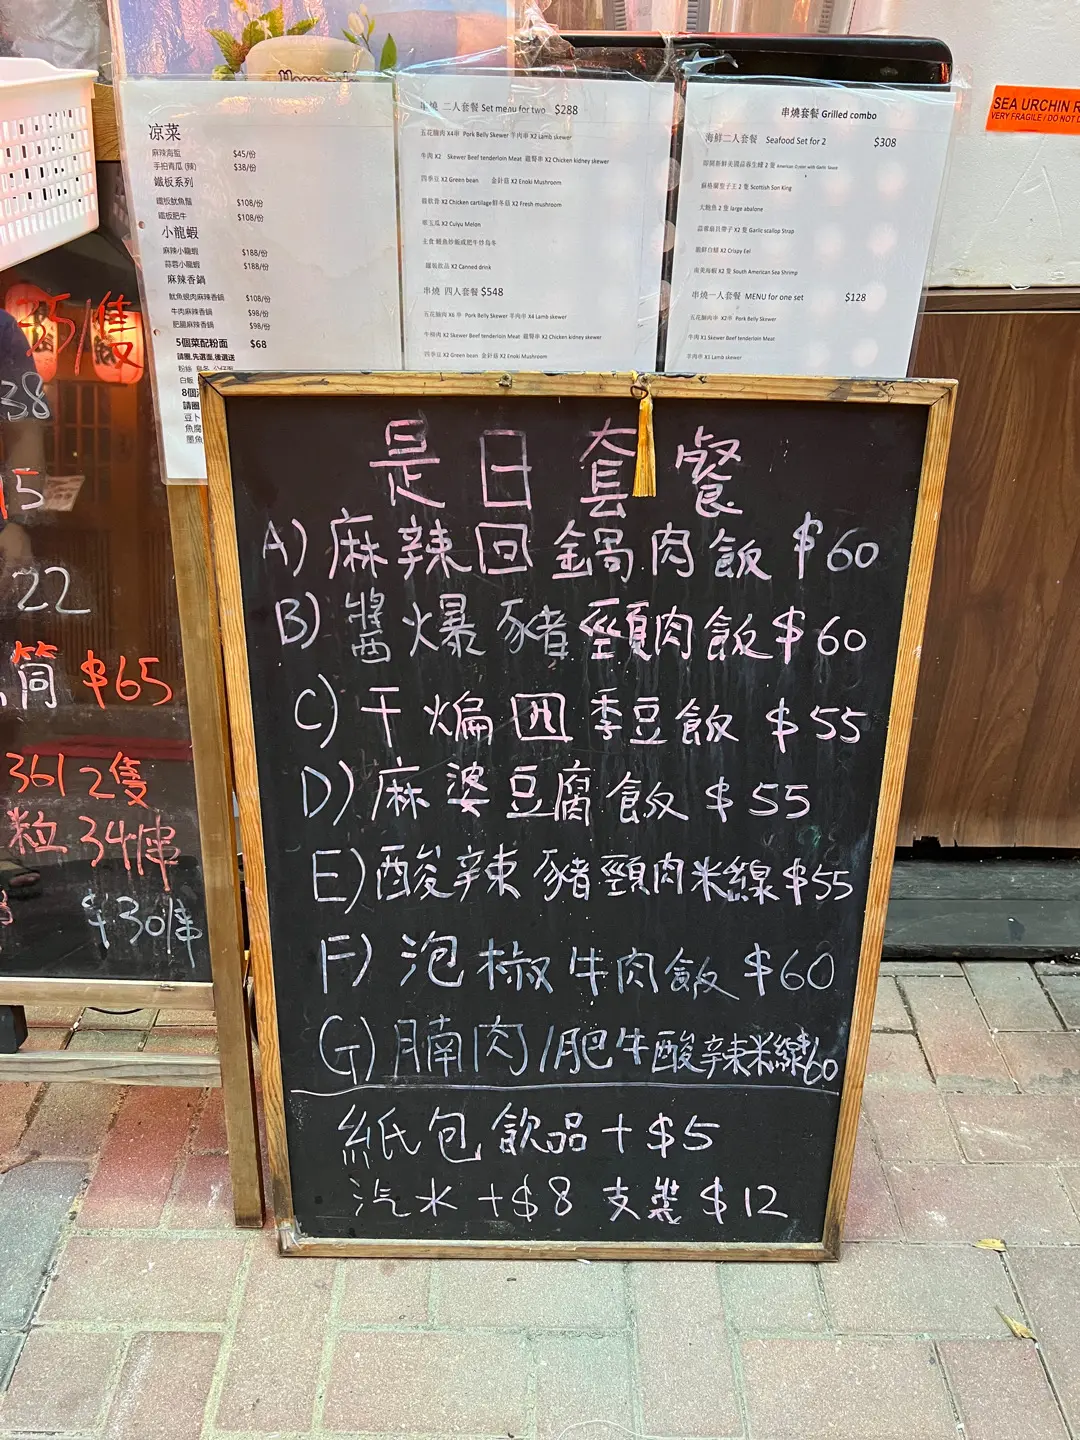 凉菜
麻辣海蜇 $45/份
手拍青瓜(辣) $38/份
鐵板系列
鐵板魷魚鬚 $108/份
鐵板肥牛 $108/份
小龍蝦
麻辣小龍蝦 $188/份
蒜蓉小龍蝦 $188/份
麻辣香鍋
魷魚蜆肉麻辣香鍋 $108/份
牛肉麻辣香鍋 $98/份
肥腸麻辣香鍋 $98/份
5個菜配粉面 $68
請圈,先選面,後選送
白飯
8個
請圈
豆卜
魚腐
墨魚
串燒 二人套餐 Set menu for two $288
五花腩肉 X4串 Pork Belly Skewer 羊肉串 X2 Lamb skewer
牛肉 X2 Skewer Beef tenderloin Meat 雞腎串 X2 Chicken kidney skewer
四季豆 X2 Green bean 金針菇 X2 Enoki Mushroonm
雞軟骨 X2 Chicken cartilage 鮮冬菇 X2 Fresh mushroom
翠玉瓜 X2 Cuiyu Melon
主食 鱔魚炒飯或肥牛炒烏冬
罐裝飲品 X2 Canned drink
串燒 四人套餐 $548
五花腩肉 X6 串 Pork Belly Skewer 羊肉串 X4 Lamb skewer
牛柳肉 X2 Skewer Beef tenderloin Meat 雞腎串 X3 Chicken kidney skewer
四季豆 X2 Green bean 金針菇 X2 Enoki Mushroom
串燒套餐 Grilled combo
海鮮二人套餐 Seafood Set for 2 $308
即開新鮮美國蒜蓉生蠔 2 隻 American Oyster with Garlic Sauce
蘇格蘭聖子王 2 隻 Scottish Son King
大鮑魚 2 隻 large abalone
蒜蓉扇貝帶子 X2 隻 Garlic scallop Strap
脆鮮白鱔 X2 Crispy Eel
南美海蝦 X2 隻 South American Sea Shrimp
串燒一人套餐 MENU for one set $128
五花腩肉串 X2串 Pork Belly Skewer
牛肉 X1 Skewer Beef tenderloin Meat
羊肉串 X1 Lamb skewer
SEA URCHIN R
VERY FRAGILE / DO NOT D
5/隻
38
15
22
筒 $65
36/2隻
粒 34/串
$30/串
是日套餐
A) 麻辣回鍋肉飯 $60
B) 醬爆豬頸肉飯 $60
C) 干煸四季豆飯 $55
D) 麻婆豆腐飯 $55
E) 酸辣豬頸肉米線 $55
F) 泡椒牛肉飯 $60
G) 腩肉/肥牛酸辣米線 $60
紙包飲品+$5
汽水+$8 支裝$12